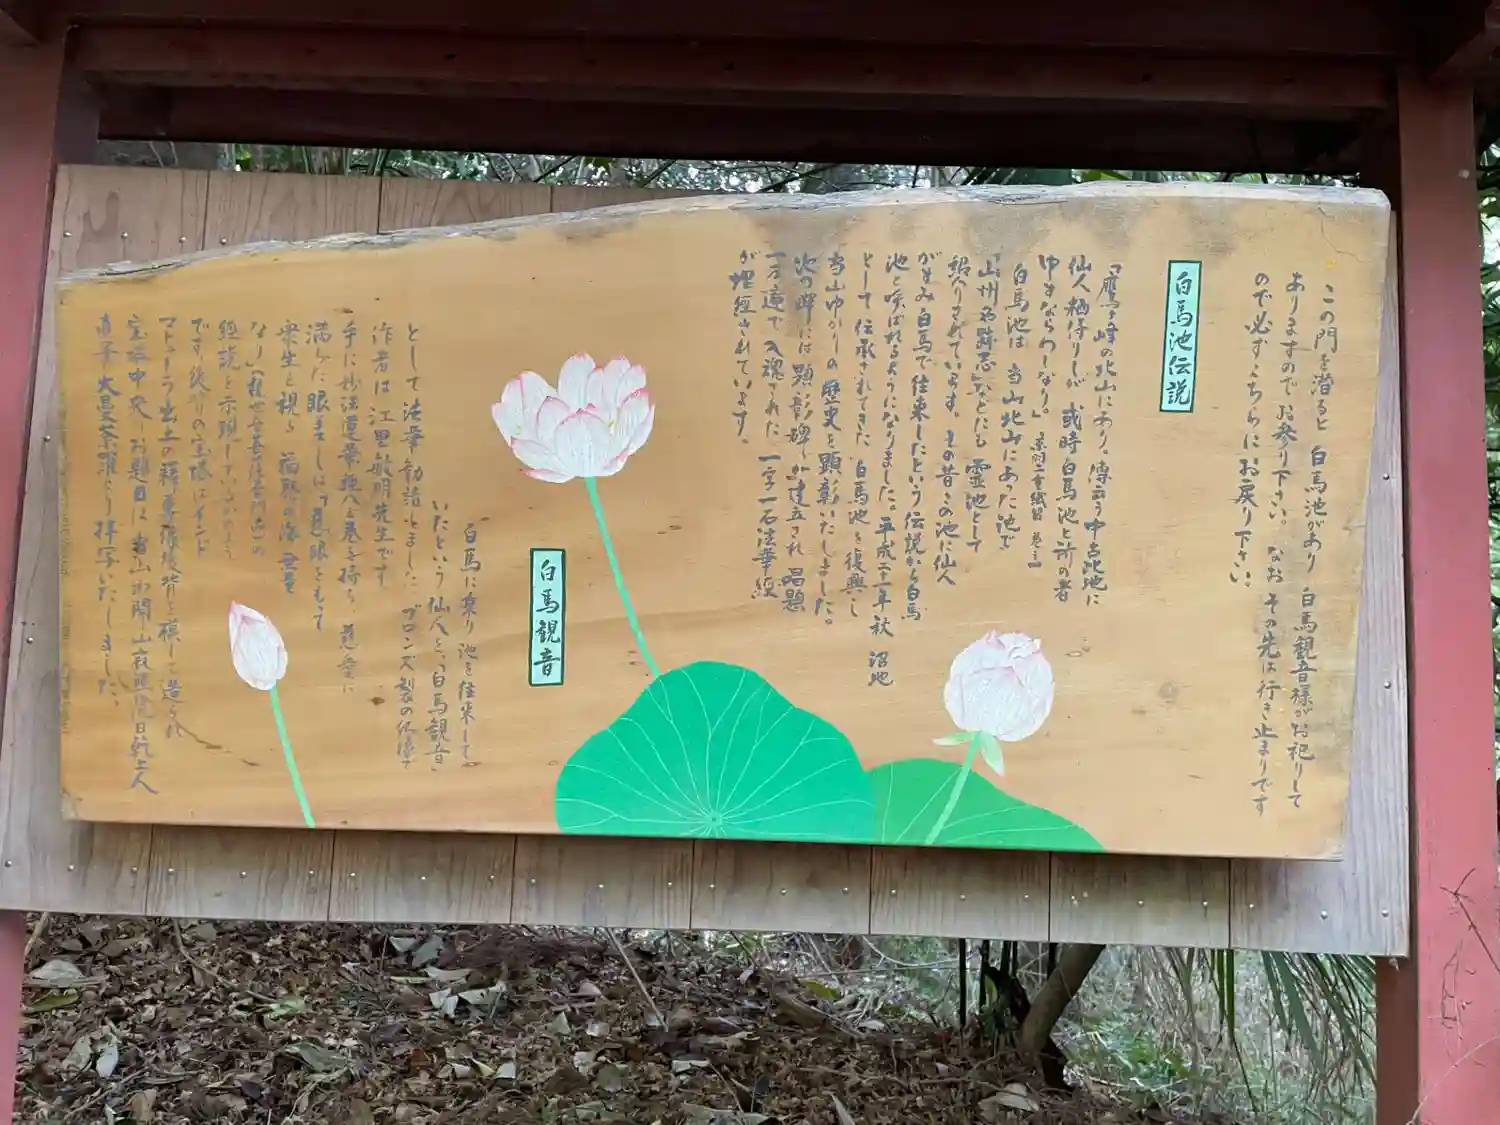 この門を潜ると 白馬池があり 白馬観音様がお祀りして
ありますのでお参り下さい。なお その先は行き止まりです
ので必ずこちらにお戻り下さい。
白馬池伝説
「鷹ヶ峰の北山にあり。傳云う中古此地に
仙人栖得りしが 或時白馬池と祈の者
ゆきならわしなり。」
白馬池は 当山北山にあった池で
「山州名跡志」などにも 霊池として
紹介されています。その昔この池に仙人
がすみ白馬で往来したという伝説から白馬
池と呼ばれるようになりました。平成二十一年秋 沼地
として伝承されてきた 白馬池を復興し
当山ゆかりの歴史を顕彰いたしました。
池の畔には 顕彰碑が建立され 唱題
一万遍で入魂された 一字一石法華経
が埋経されています。
白馬観音
白馬に乗り池を往来して
いたという仙人を、「白馬観音」
として法華勧請しました ブロンズ製の仏像で
作者は 江里敏明先生です
手に妙法蓮華経八巻を持ち、慈愛に
満ちた眼差しは「慈眼をもって
衆生を視る 福聚の海 無量
なり」の
経説を示現しているかのよう
です 後背の宝塔はインド
マトゥーラ出土の釈尊像後背を模して造られ
宝塔中央 お題目は 当山の開山寂照院日乾上人
直筆 大曼荼羅より拝写いたしました。